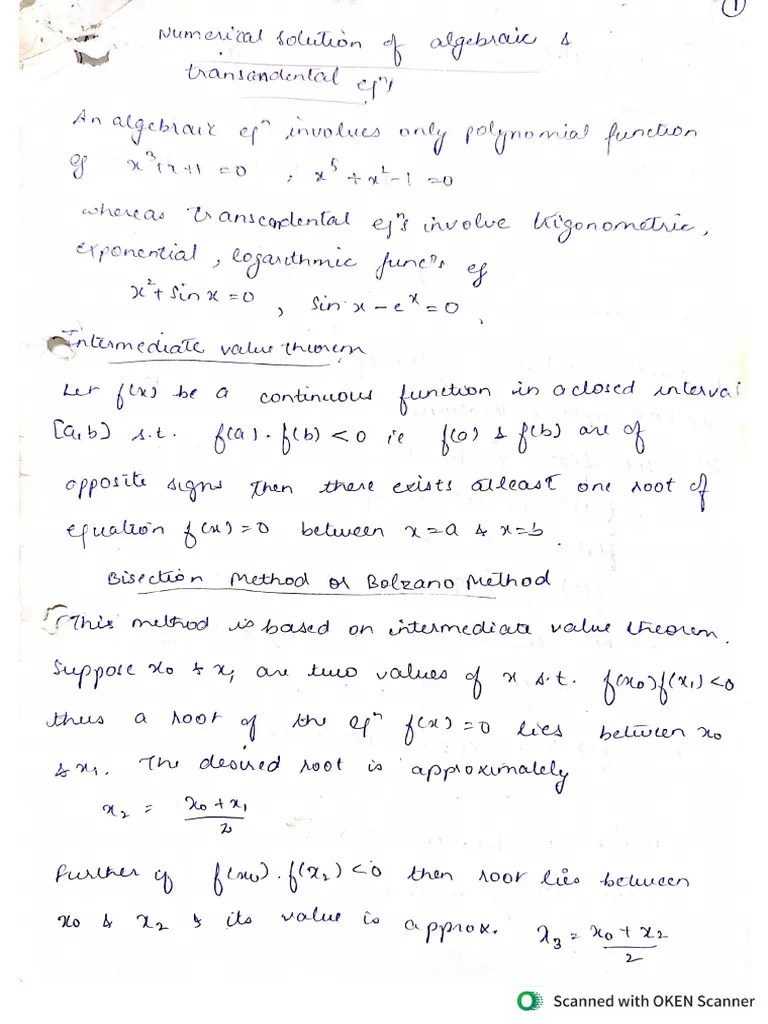 1
Numerical solution of algebraic &
transcendental eqⁿs
An algebraic eqⁿ involves only polynomial function
eg x³+x+1=0 , x⁵+x²-1=0
whereas transcendental eqⁿs involve trigonometric,
exponential, logarithmic funcⁿs eg
x²+sin x=0 , sin x-eˣ=0 .
Intermediate value theorem
Let f(x) be a continuous function in a closed interval
[a,b] s.t. f(a).f(b)<0 ie f(a) & f(b) are of
opposite signs then there exists atleast one root of
equation f(x)=0 between x=a & x=b .
Bisection Method or Bolzano Method
This method is based on intermediate value theorem.
Suppose x₀ & x₁ are two values of x s.t. f(x₀)f(x₁)<0
thus a root of the eqⁿ f(x)=0 lies between x₀
& x₁. The desired root is approximately
x₂ = (x₀+x₁)/2
Further if f(x₀).f(x₂)<0 then root lies between
x₀ & x₂ & its value is approx. x₃ = (x₀+x₂)/2
Scanned with OKEN Scanner